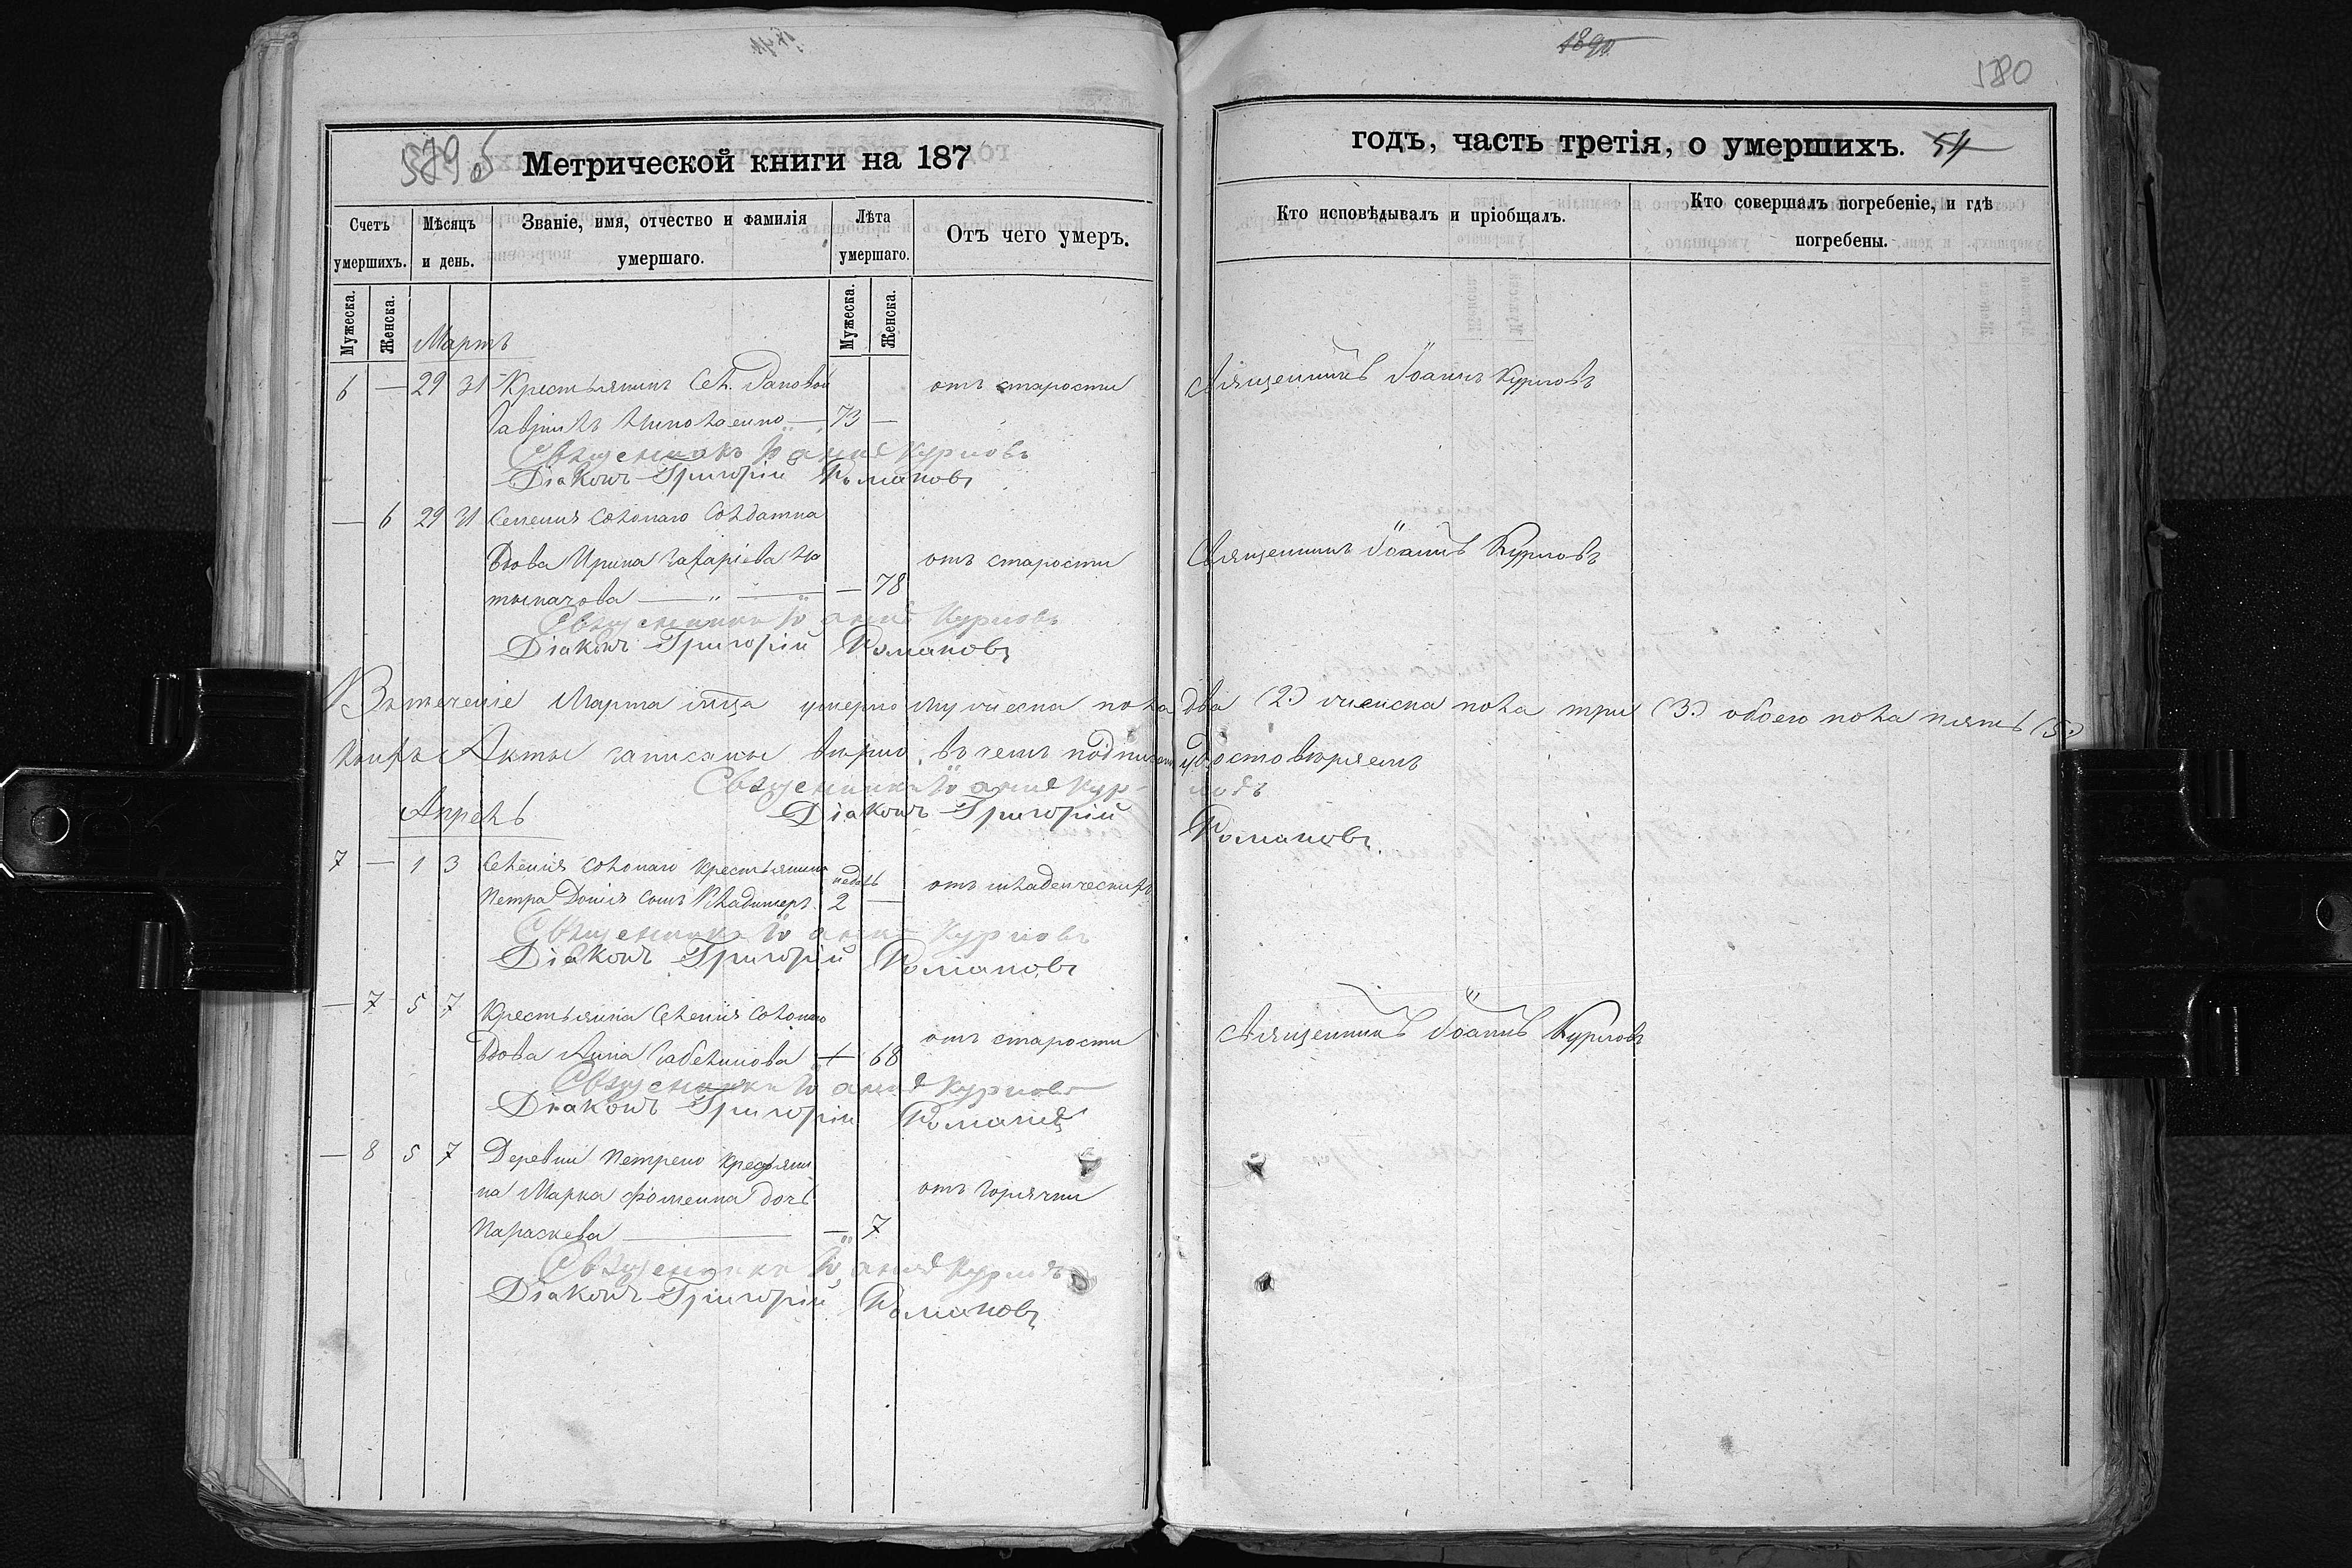 1890
580
579 об
Метрической книги на 187
годъ, часть третія, о умершихъ. 54
Счетъ умершихъ.
Мѣсяцъ и день.
Званіе, имя, отчество и фамилія умершаго.
Лѣта умершаго.
Отъ чего умеръ.
Кто исповѣдывалъ и пріобщалъ.
Кто совершалъ погребеніе, и гдѣ погребены.
Мужеска.
Женска.
Мужеска.
Женска.
Мартъ
6 — 29 31 Крестьянинъ Сел. отъ старости Священникъ Іоаннъ Курловъ
Гавріилъ — 73 —
Священникъ Іоаннъ Курловъ
Діаконъ Григорій Романовъ
— 6 29 31 Селенія Солонаго Солдатка
Вдова Ирина Захаріева отъ старости Священникъ Іоаннъ Курловъ
— " — — 78
Священникъ Іоаннъ Курловъ
Діаконъ Григорій Романовъ
Втеченіе Марта мца умерло мужеска пола два (2) женска пола три (3) обоего пола пять (5)
Акты записаны вѣрно, въ чемъ подписомъ удостовѣряемъ
Священникъ Іоаннъ Курловъ
Діаконъ Григорій Романовъ.
Апрель
7 — 1 3 Селенія Солонаго крестьянина недѣль
Петра сынъ Владимеръ. 2 — отъ младенческихъ
Священникъ Іоаннъ Курловъ
Діаконъ Григорій Романовъ
— 7 5 7 Крестьянка Селенія Солонаго
Вдова Анна — 68 отъ старости Священникъ Іоаннъ Курловъ
Священникъ Іоаннъ Курловъ
Діаконъ Григорій Романовъ
— 8 5 7 Деревни Петрено крестьяни
на Марка Фоменка дочь отъ горячки
Параскева — — 7
Священникъ Іоаннъ Курловъ
Діаконъ Григорій Романовъ